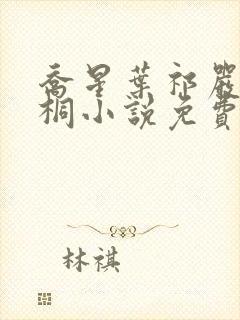 喬星葉祁嚴
桐小說免費
林祺